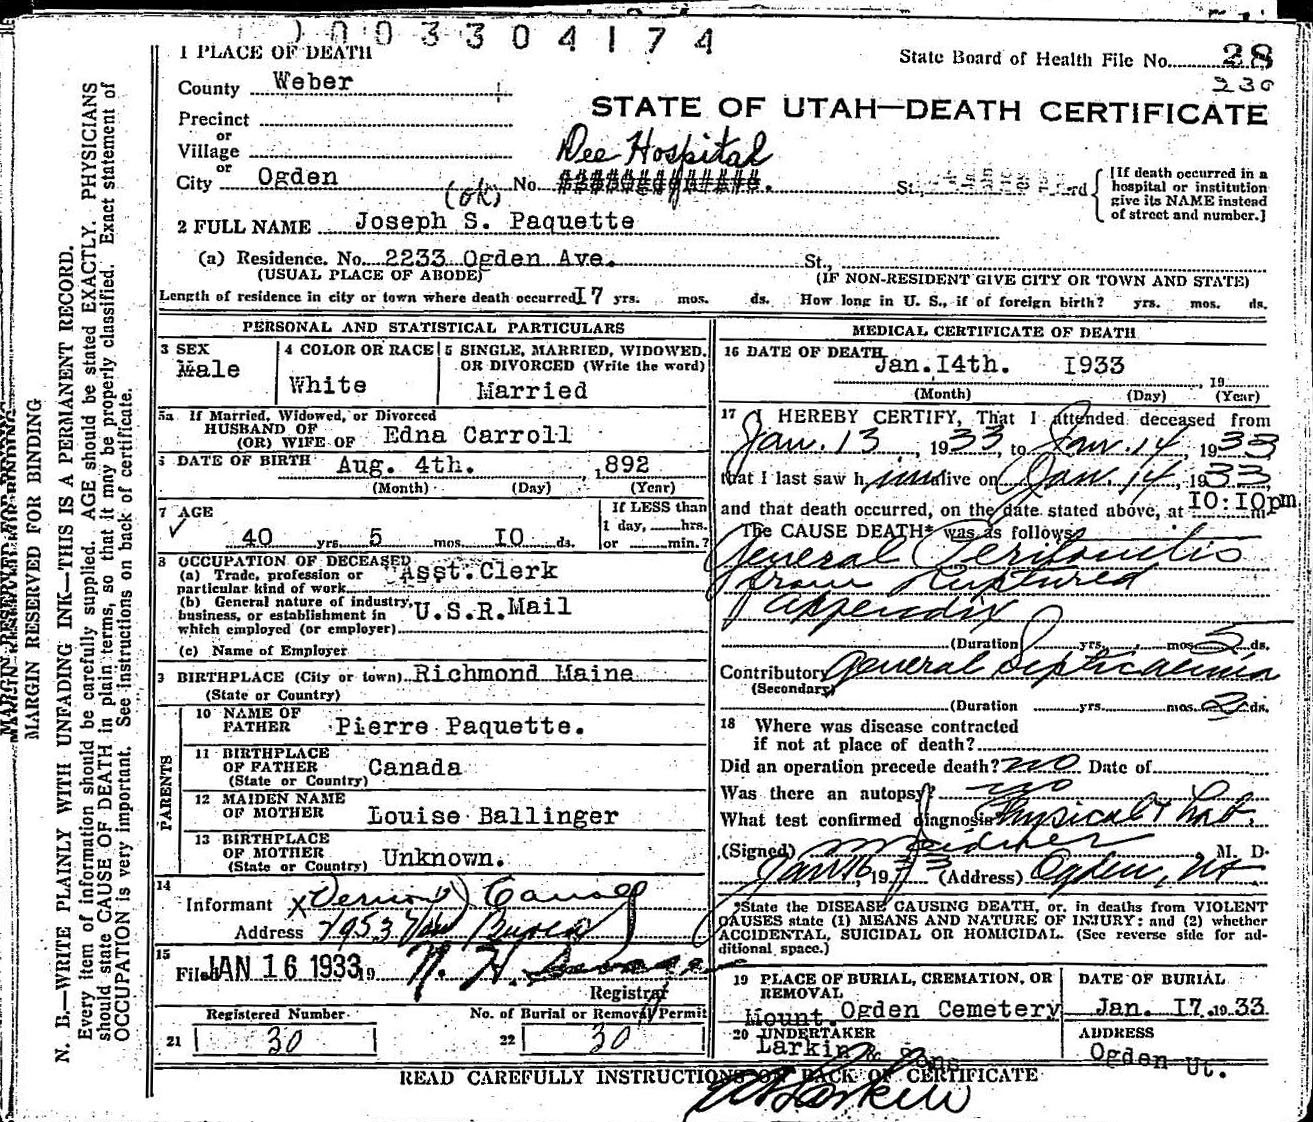 1003304174
1 PLACE OF DEATH
State Board of Health File No. 28
230
County Weber
STATE OF UTAH—DEATH CERTIFICATE
Precinct
or
Village
Dee Hospital
or
City Ogden
(ok)
No.
St.,
[If death occurred in a
hospital or institution
give its NAME instead
of street and number.]
2 FULL NAME Joseph S. Paquette
(a) Residence. No. 2233 Ogden Ave. St.,
(USUAL PLACE OF ABODE) (IF NON-RESIDENT GIVE CITY OR TOWN AND STATE)
Length of residence in city or town where death occurred I7 yrs. mos. ds. How long in U. S., if of foreign birth? yrs. mos. ds.
PERSONAL AND STATISTICAL PARTICULARS
3 SEX
Male
4 COLOR OR RACE
White
5 SINGLE, MARRIED, WIDOWED,
OR DIVORCED (Write the word)
Married
5a If Married, Widowed, or Divorced
HUSBAND OF
(OR) WIFE OF Edna Carroll
6 DATE OF BIRTH Aug. 4th. ,892
(Month) (Day) (Year)
7 AGE
40 yrs. 5 mos. IO ds.
If LESS than
1 day, hrs.
or min.?
8 OCCUPATION OF DECEASED
(a) Trade, profession or
particular kind of work Asst. Clerk
(b) General nature of industry,
business, or establishment in
which employed (or employer) U.S.R.Mail
(c) Name of Employer
9 BIRTHPLACE (City or town) Richmond Maine
(State or Country)
PARENTS
10 NAME OF
FATHER Pierre Paquette.
11 BIRTHPLACE
OF FATHER
(State or Country) Canada
12 MAIDEN NAME
OF MOTHER Louise Ballinger
13 BIRTHPLACE
OF MOTHER
(State or Country) Unknown.
14
Informant x Vernon
Address
15
Filed JAN 16 1933 19 N. H.
Registrar
Registered Number
21 30
No. of Burial or Removal Permit
22 30
MEDICAL CERTIFICATE OF DEATH
16 DATE OF DEATH Jan.I4th. I933
, 19
(Month) (Day) (Year)
17 I HEREBY CERTIFY, That I attended deceased from
Jan. 13, 1933, to Jan. 14, 1933
that I last saw him alive on Jan. 14, 1933
and that death occurred, on the date stated above, at IO:IOpm
The CAUSE DEATH* was as follows:
General Peritonitis
from Ruptured
appendix
(Duration yrs. mos. 5 ds.
Contributory General Septicaemia
(Secondary)
(Duration yrs. mos. 2 ds.
18 Where was disease contracted
if not at place of death?
Did an operation precede death? no Date of
Was there an autopsy? no
What test confirmed diagnosis Physical & Lab.
(Signed) M. D.
Jan 16, 1933 (Address) Ogden, Ut
*State the DISEASE CAUSING DEATH, or, in deaths from VIOLENT
CAUSES state (1) MEANS AND NATURE OF INJURY: and (2) whether
ACCIDENTAL, SUICIDAL OR HOMICIDAL. (See reverse side for ad-
ditional space.)
19 PLACE OF BURIAL, CREMATION, OR
REMOVAL
Mount. Ogden Cemetery
DATE OF BURIAL
Jan. I7. 19 33
20 UNDERTAKER
Larkin & Sons
ADDRESS
Ogden Ut.
READ CAREFULLY INSTRUCTIONS ON BACK OF CERTIFICATE
Larkin
MARGIN RESERVED FOR BINDING
N. B.—WRITE PLAINLY WITH UNFADING INK—THIS IS A PERMANENT RECORD.
Every item of information should be carefully supplied. AGE should be stated EXACTLY. PHYSICIANS
should state CAUSE OF DEATH in plain terms, so that it may be properly classified. Exact statement of
OCCUPATION is very important. See instructions on back of certificate.